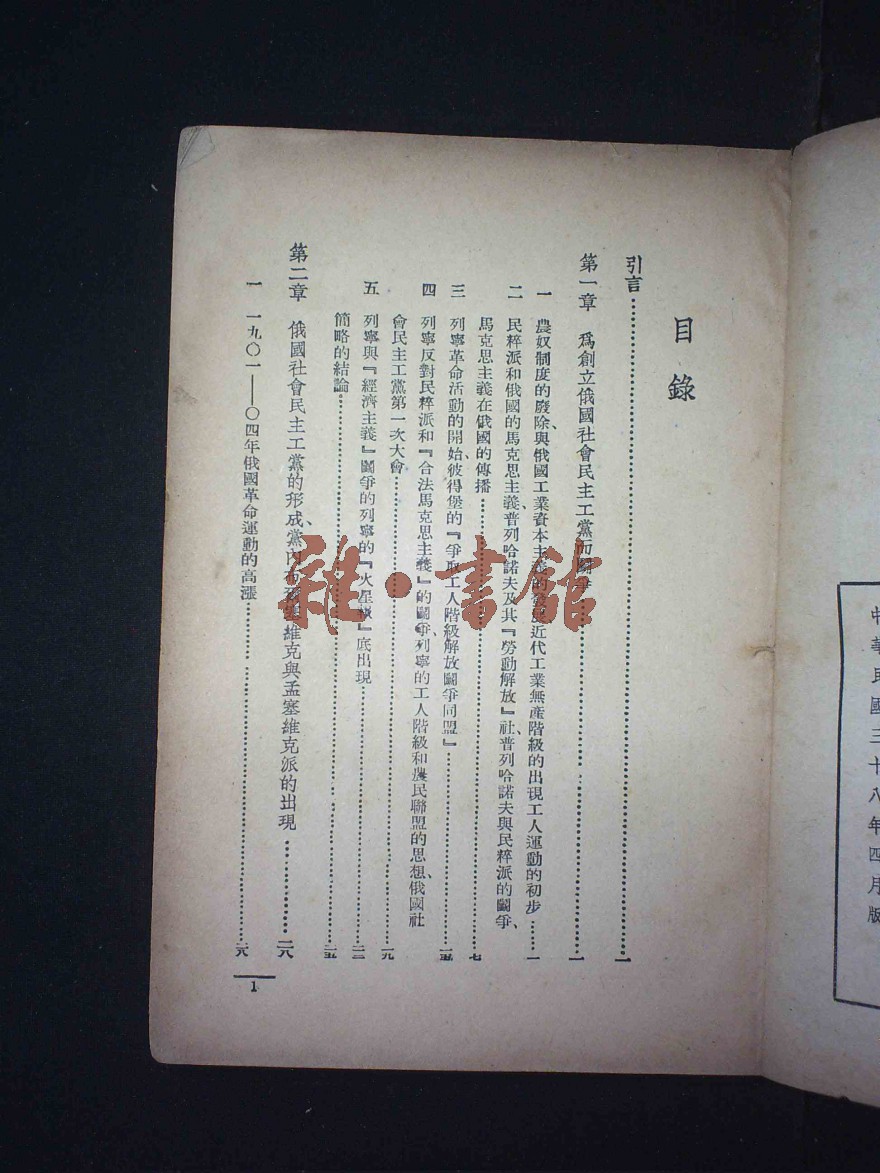 中華民國三十八年四月版
目錄
引言……一
第一章　為創立俄國社會民主工黨而鬭爭……一
一　農奴制度的廢除、與俄國工業資本主義的發展、近代工業無產階級的出現、工人運動的初步……一
二　民粹派和俄國的馬克思主義、普列哈諾夫及其『勞動解放』社、普列哈諾夫與民粹派的鬭爭、
馬克思主義在俄國的傳播……七
三　列寧革命活動的開始、彼得堡的『爭取工人階級解放鬭爭同盟』……一五
四　列寧反對民粹派和『合法馬克思主義』的鬭爭、列寧的工人階級和農民聯盟的思想、俄國社
會民主工黨第一次大會……一九
五　列寧與『經濟主義』鬭爭的列寧的『火星報』底出現……二二
簡略的結論……二五
第二章　俄國社會民主工黨的形成、黨內布爾塞維克與孟塞維克派的出現……二八
一　一九〇一——〇四年俄國革命運動的高漲……二八
1
雜·書館